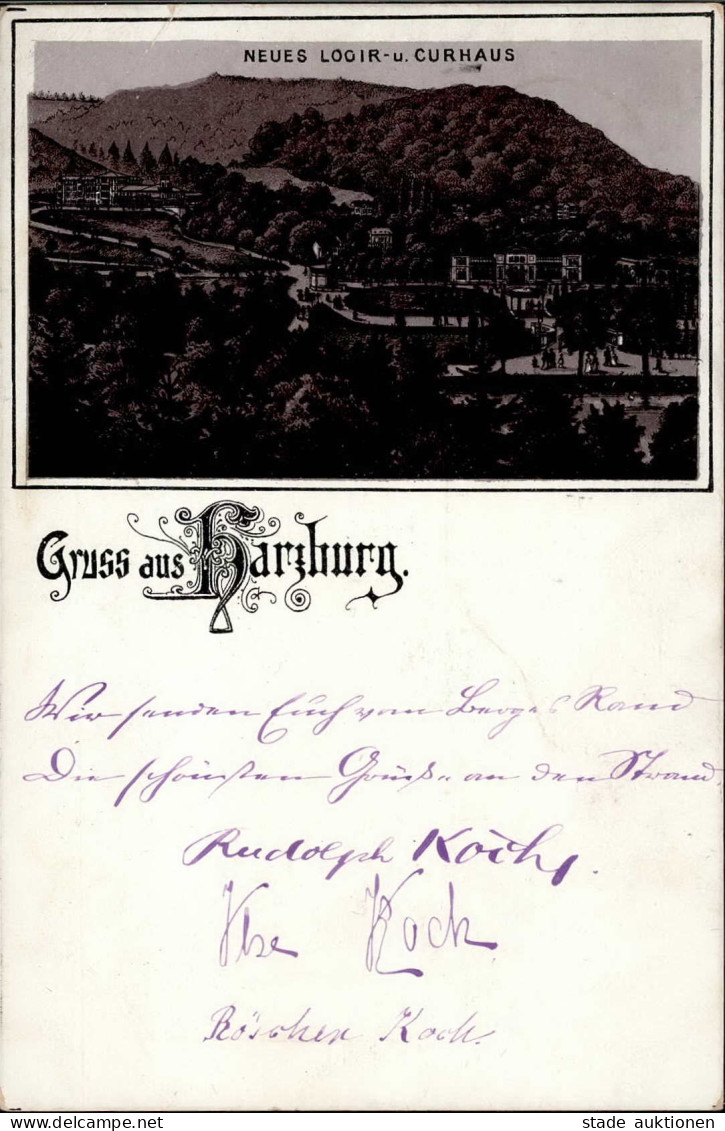 NEUES LOGIR- u. CURHAUS
Gruss aus Harzburg.
Wir senden Euch vom Berges Rand
Die schönsten Grüße an den Strand.
Rudolph Kochs.
Ilse Koch
Röschen Koch.
stade auktionen